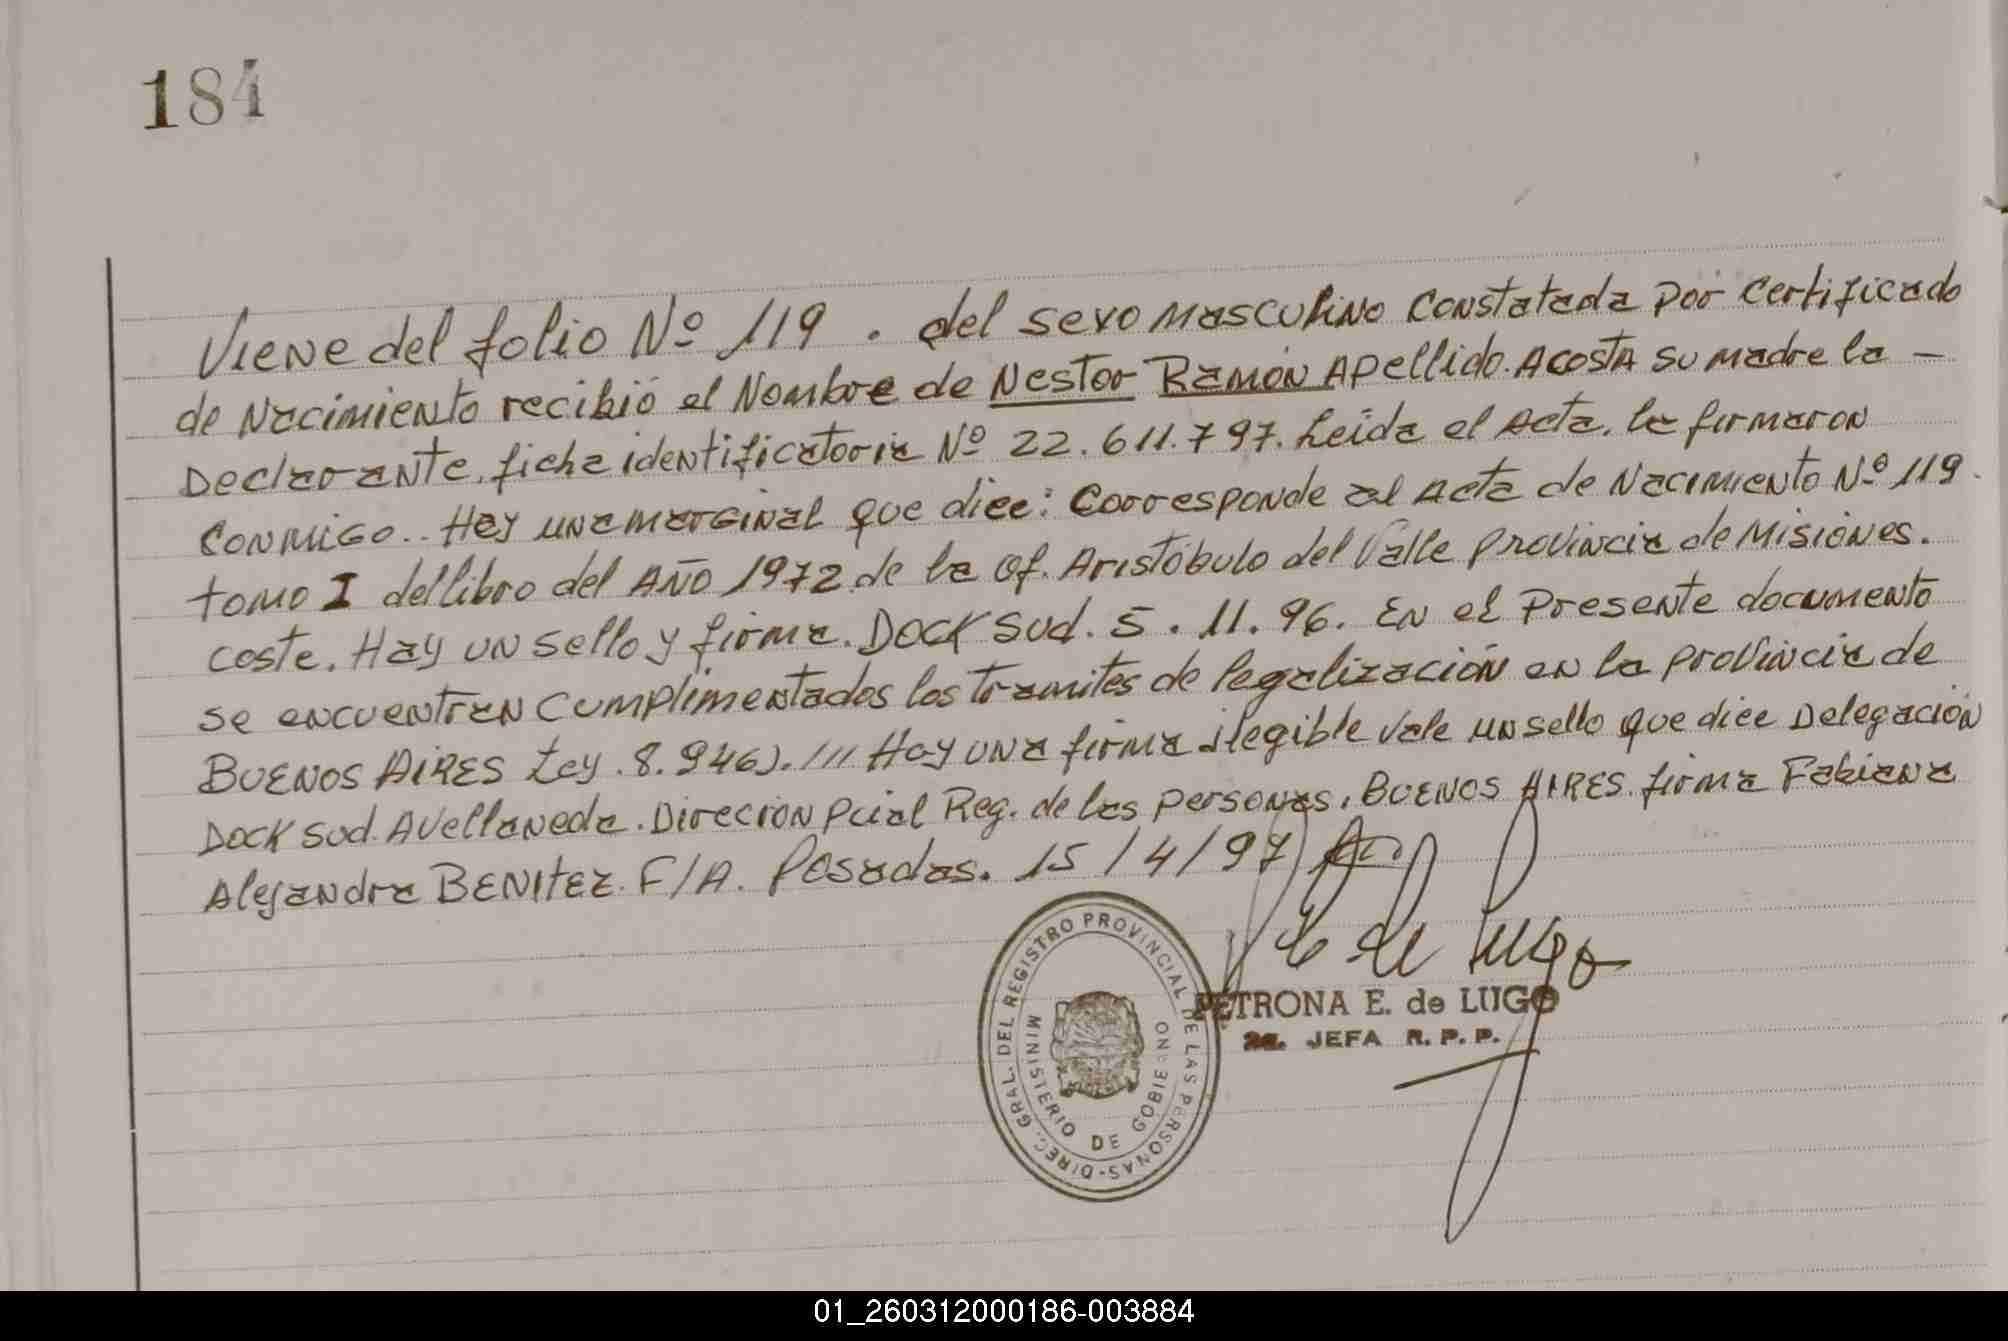 184
Viene del folio Nº 119. del sexo masculino constatada por certificado
de nacimiento recibió el nombre de Nestor Ramón Apellido. Acosta su madre la -
Declarante. ficha identificatoria Nº 22.611.797. Leida el Acta, la firmaron
conmigo.. Hay una marginal que dice: Corresponde al Acta de Nacimiento Nº 119.
tomo I del libro del Año 1972 de la Of. Aristóbulo del Valle Provincia de Misiónes.
coste. Hay un sello y firma. Dock Sud. 5.11.96. En el Presente documento
se encuentran cumplimentados los tramites de legalización en la provincia de
Buenos Aires Ley. 8.946). /// Hay una firma ilegible vale un sello que dice Delegación
Dock Sud. Avellaneda. Direcion Pcial Reg. de las personas. Buenos Aires. firma Fabiana
Alejandra Benitez. F/A. Posadas. 15/4/97
de Lugo
PETRONA E. de LUGO
JEFA R. P. P.
DIREC. GRAL. DEL REGISTRO PROVINCIAL DE LAS PERSONAS-
MINISTERIO DE GOBIERNO
01_260312000186-003884